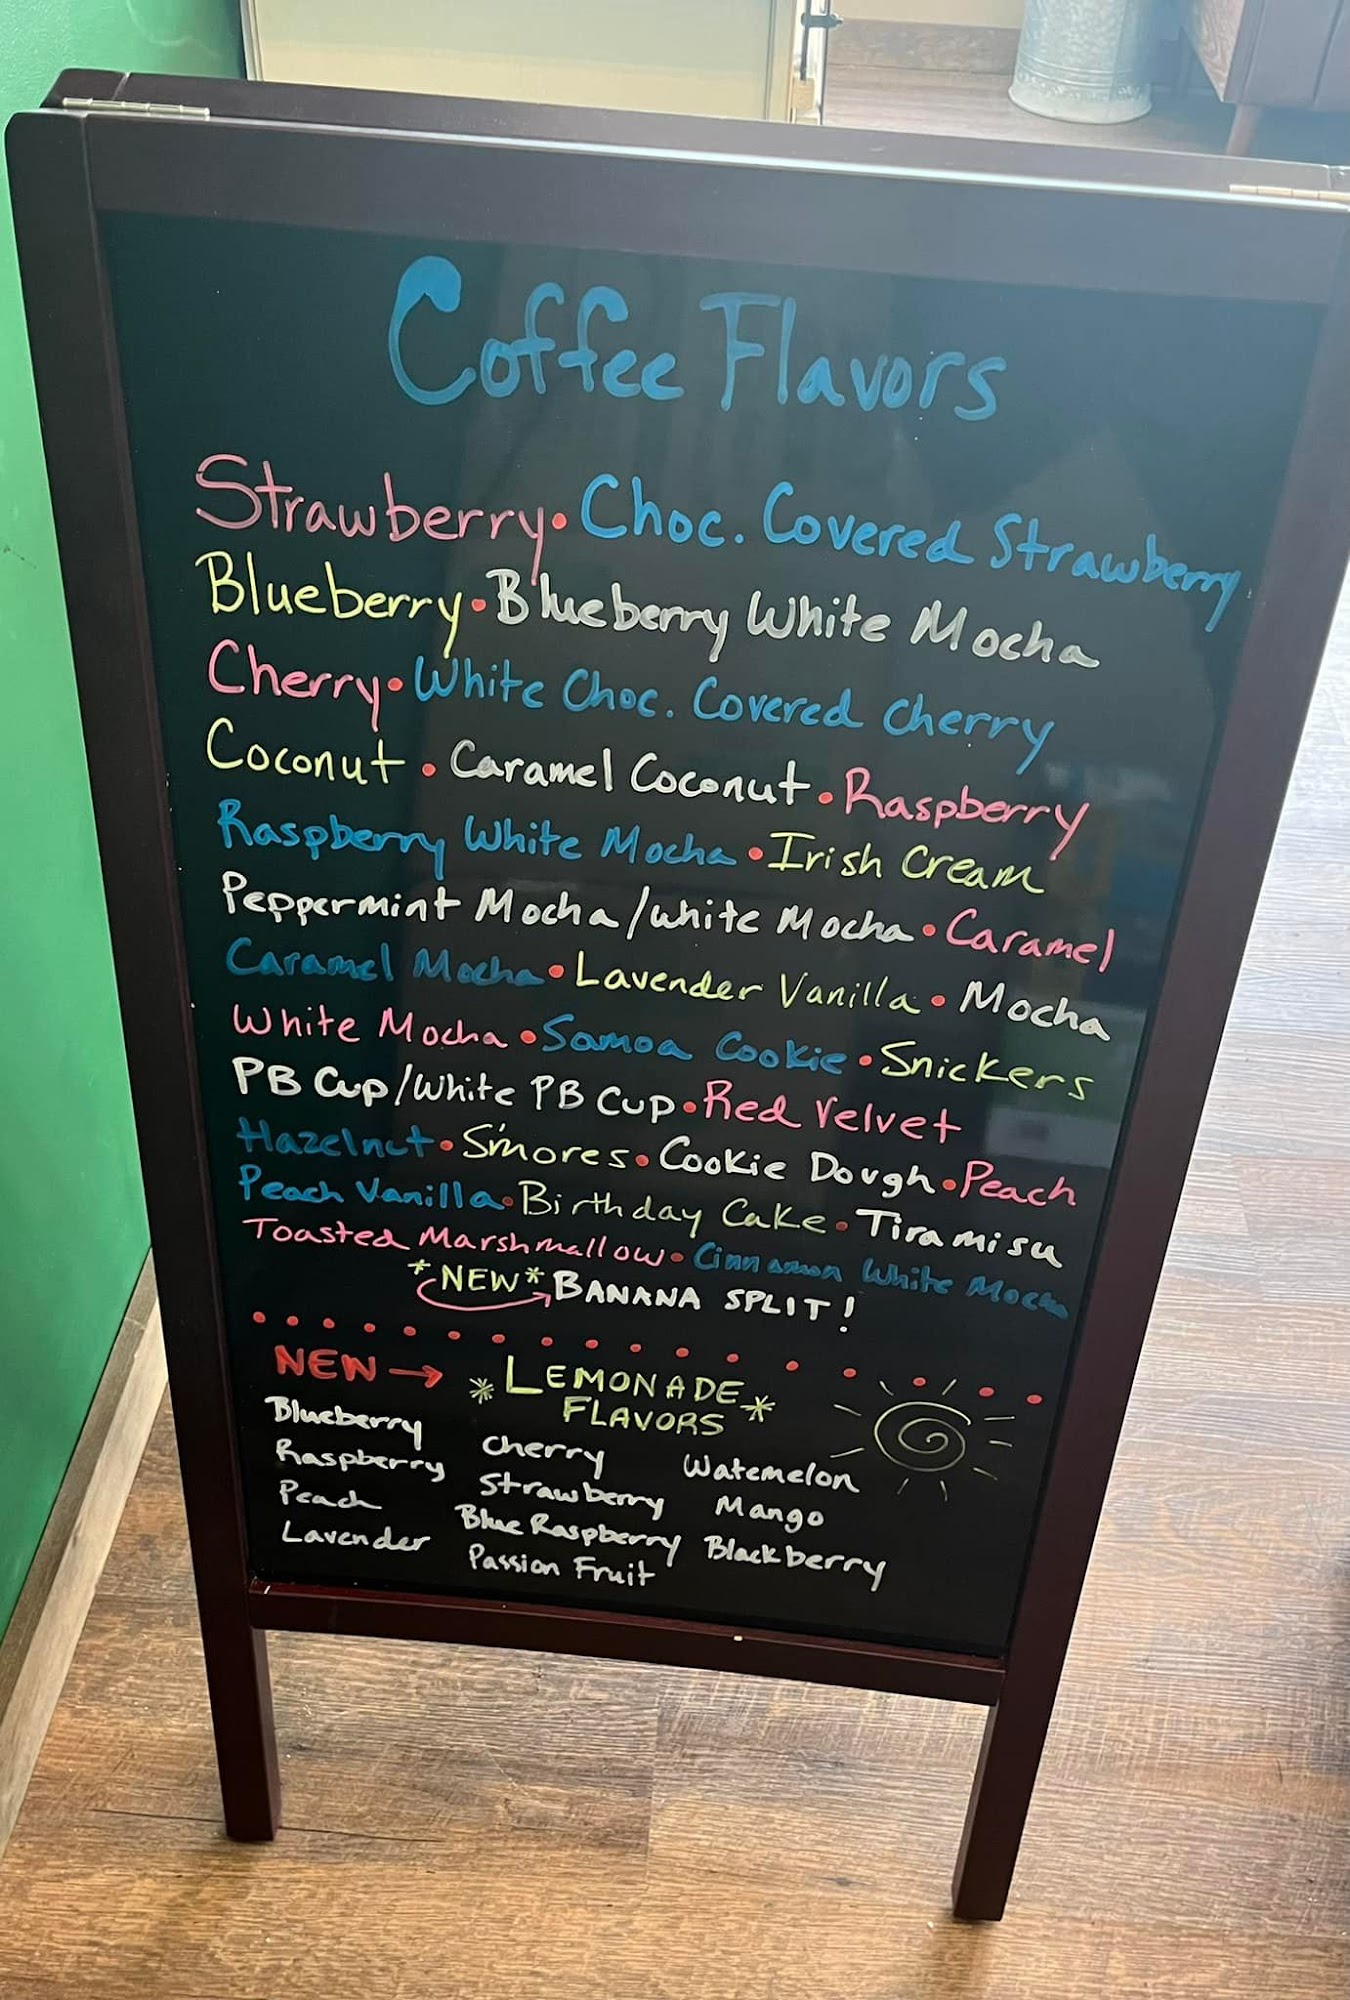 Coffee Flavors
Strawberry • Choc. Covered Strawberry
Blueberry • Blueberry White Mocha
Cherry • White Choc. Covered Cherry
Coconut • Caramel Coconut • Raspberry
Raspberry White Mocha • Irish Cream
Peppermint Mocha/White Mocha • Caramel
Caramel Mocha • Lavender Vanilla • Mocha
White Mocha • Samoa Cookie • Snickers
PB Cup/White PB Cup • Red Velvet
Hazelnut • S'mores • Cookie Dough • Peach
Peach Vanilla • Birthday Cake • Tiramisu
Toasted Marshmallow • Cinnamon White Mocha
*NEW* BANANA SPLIT!
NEW → *LEMONADE
FLAVORS*
Blueberry Cherry Watemelon
Raspberry Strawberry Mango
Peach Blue Raspberry Blackberry
Lavender Passion Fruit